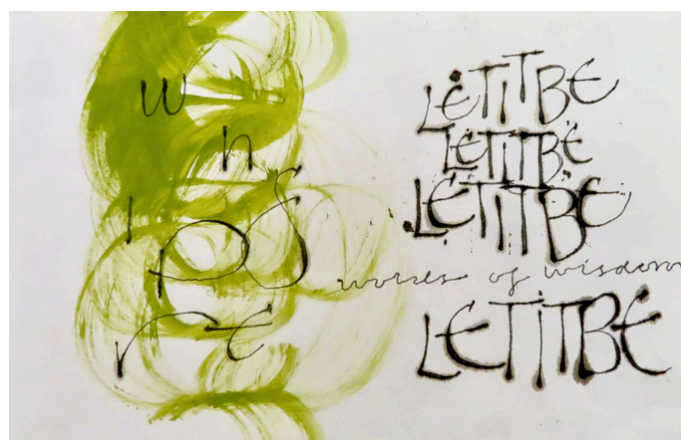 w
h
i
PS
rE
LETITBE
LETITBE
LETITBE
words of wisdom
LETITBE